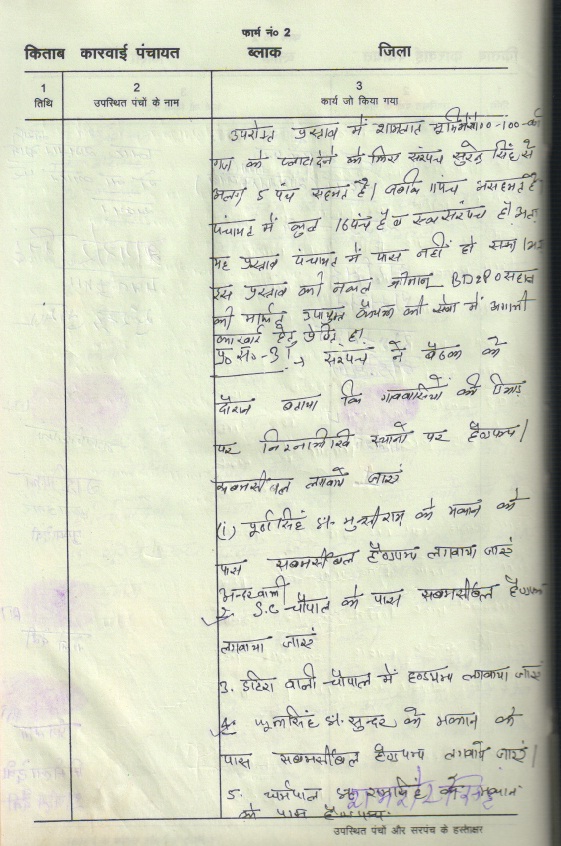 फार्म नं० 2
किताब कारवाई पंचायत ब्लाक जिला
1 2 3
तिथि उपस्थित पंचों के नाम कार्य जो किया गया
उपरोक्त प्रस्ताव में शामलात 100-100
गज के प्लाट देने के लिए सरपंच सुरेन्द्र सिंह से
अलग 5 पंच सहमत है। जबकि 11 पंच असहमत है
पंचायत में कुल 16 पंच है व एक सरपंच है अतः
यह प्रस्ताव पंचायत में पास नहीं हो सका।
इस प्रस्ताव की नकल श्रीमान BD&PO साहब
की मार्फत उपायुक्त कैथल की सेवा में अगामी
कारवाई हेतु प्रेषित है।
प्र० सं०-3। → सरपंच ने बैठक के
दौरान बताया कि गांववासियों की डिमांड
पर निम्नलिखित स्थानों पर हैण्डपम्प।
सबमर्सीबल लगवाये जाएं
(i) पूर्ण सिंह s/o मुन्शी राम के मकान के
पास सबमर्सीबल हैण्डपम्प लगवाया जाएं
अन्दरवाली
2. S.C चौपाल के पास सबमर्सीबल हैण्डपम्प
लगवाया जाएं
3. वाली चौपाल में हैण्डपम्प लगवाया जाएं
4. फूलसिंह s/o सुन्दर के मकान के
पास सबमर्सीबल हैण्डपम्प लगवाये जाएं।
5. धर्मपाल s/o के मकान
के पास हैण्डपम्प
उपस्थित पंचों और सरपंच के हस्ताक्षर